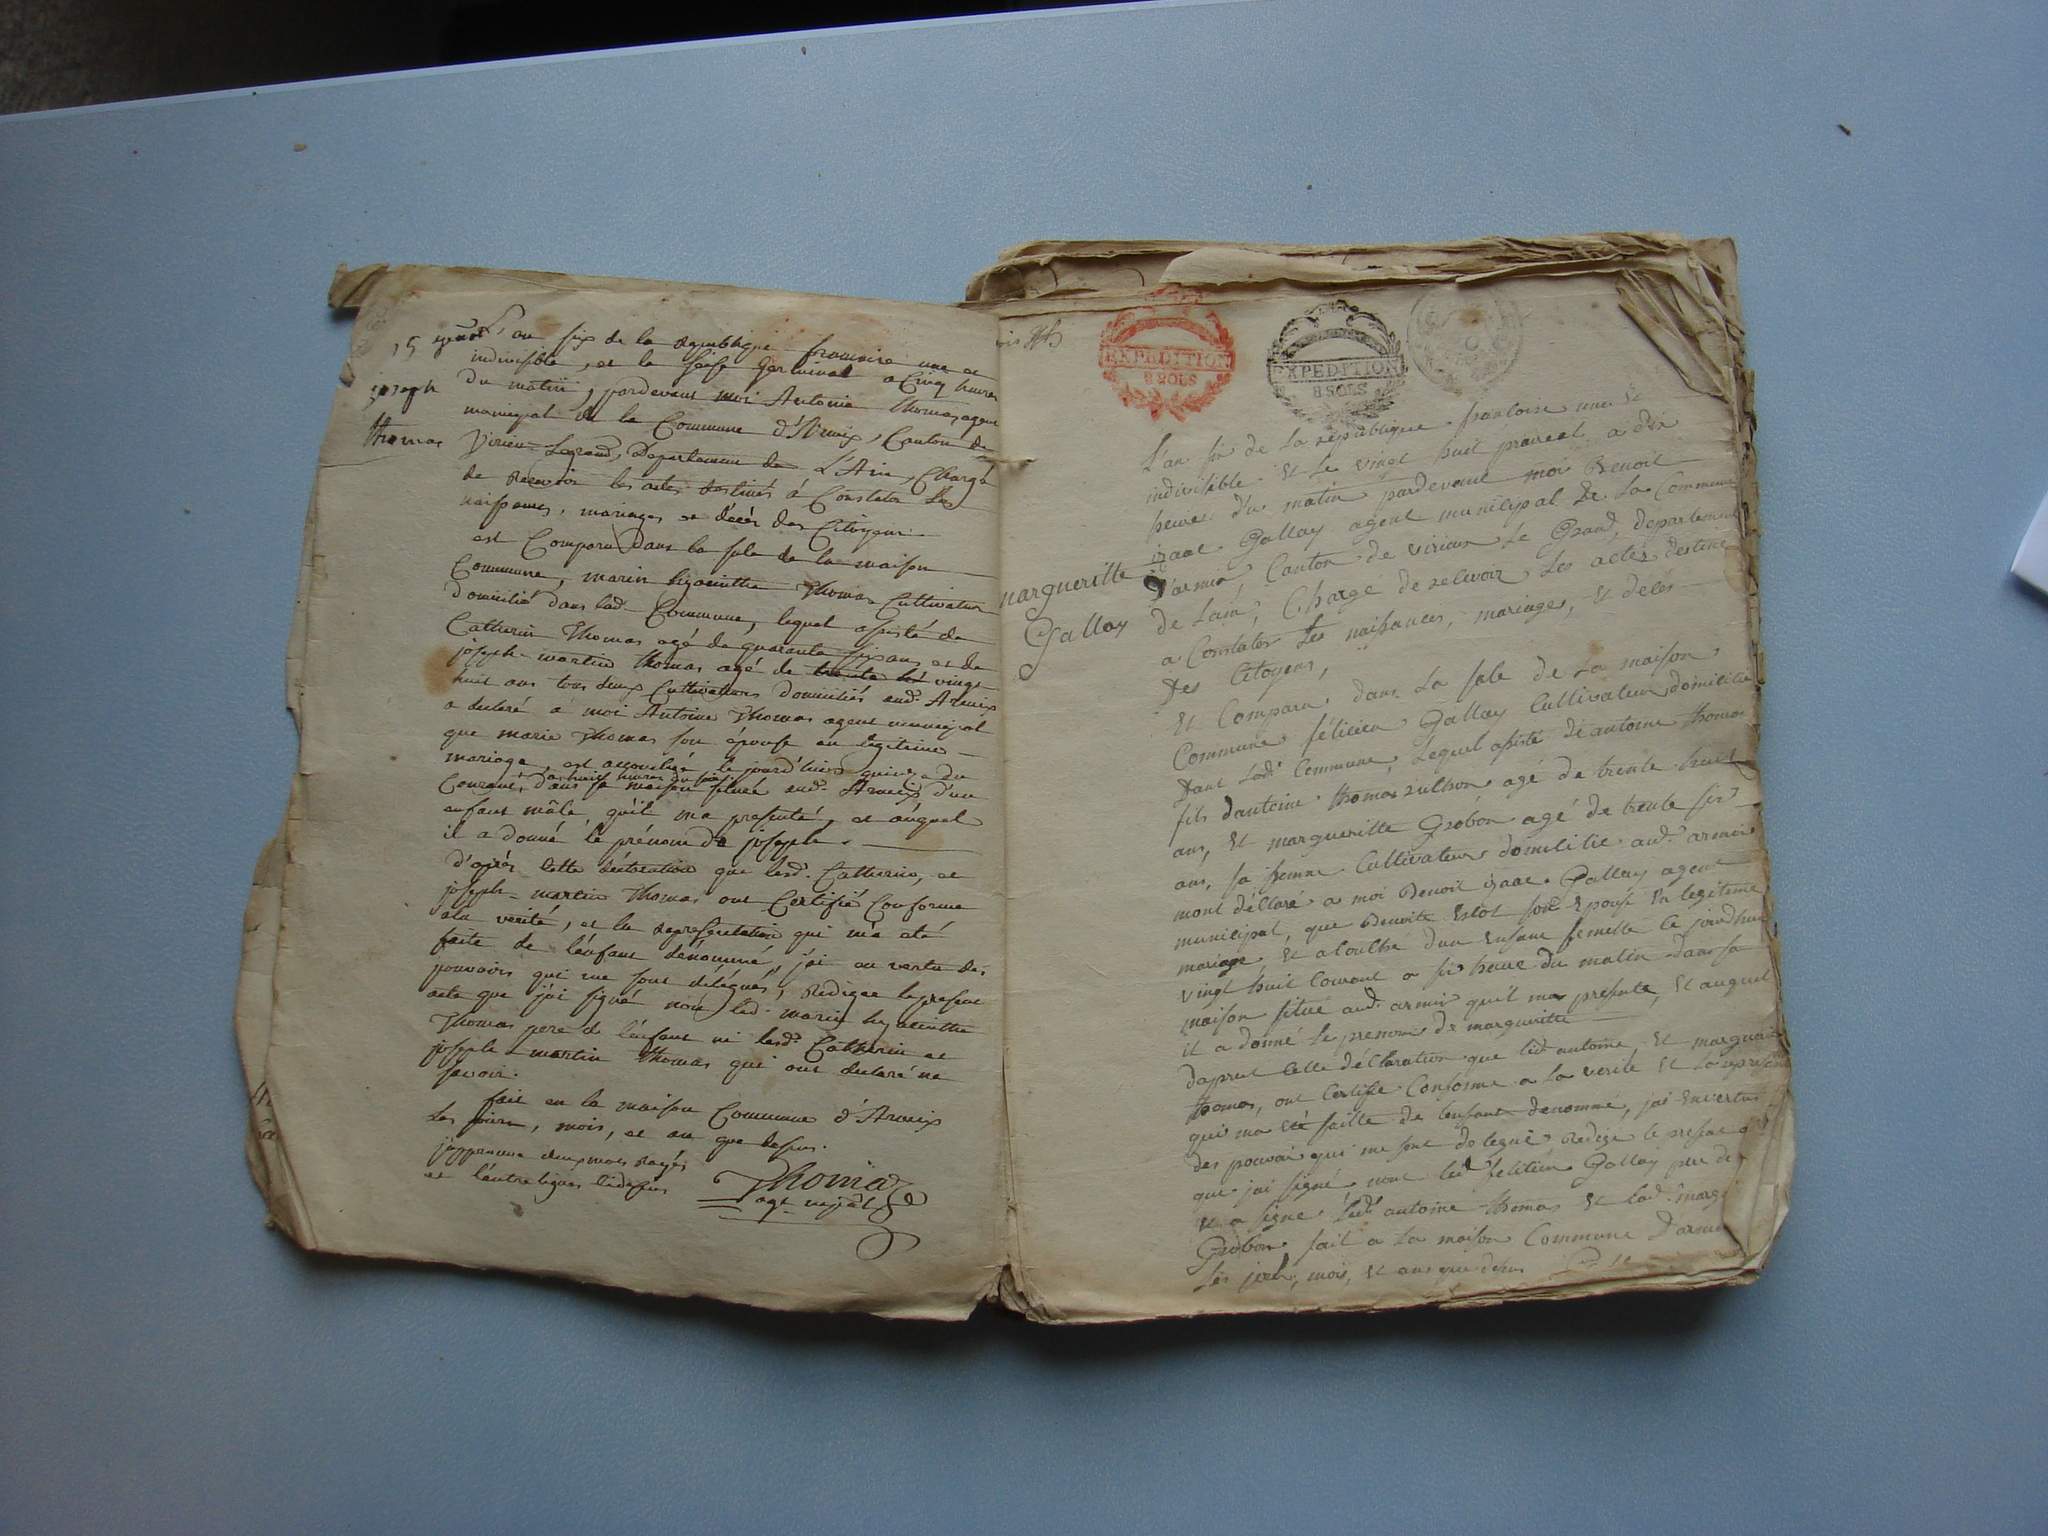 15
joseph
thomas
L'an six de la république francaise une et
indivisible, et le seise germinal a Cinq heures
du matin, pardevant moi Antoine Thomas agent
municipal de la Commune d'Armix, Canton de
Virieu-Legrand, Departement de L'Ain, Chargé
de Recevoir les actes destinés à Constater les
naissances, mariages et décés des Citoyens.
est Comparu dans la sale de la maison
Commune, marin hyacinthe Thomas Cultivateur
domicilié dans lad. Commune, lequel assisté de
Catherin Thomas agé de quarante six ans et de
joseph-martin thomas agé de vingt
huit ans tous deux Cultivateurs domiciliés aud. Armix
a declaré à moi Antoine Thomas agent municipal
que marie Thomas son épouse en légitime
mariage, est accouchée le jourd'hier quinze du
à huit heures du soir
Courant, dans sa maison située aud. Armix d'un
enfant mâle, qu'il m'a présenté, et auquel
il a donné le prénom de joseph.
d'après cette déclaration que lesd. Catherin, et
joseph-martin Thomas ont Certifié Conforme
à la verité, et la representation qui m'a été
faite de l'enfant dénommé, j'ai en vertu des
pouvoirs qui me sont délégués, Rédigé le present
acte que j'ai signé non led. marin hyacinthe
Thomas pere de l'enfant ni lesd. Catherin et
joseph martin thomas qui ont declaré ne
savoir.
fait en la maison Commune d'Armix
Les jours, mois, et an que dessus.
j'approuve deux mots rayés
et l'entreligne cidessus
Thomas
agt. mpal
EXPEDITION
8 SOLS
EXPEDITION
8 SOLS
margueritte
Gallay
L'an six de La république francoise une et
indivisible et Le vingt huit prairéal a dix
heure du matin pardevant moi Benoit
izaac Gallay agent municipal de La Commune
d'armix, Canton de virieux Le Grand, département
de Lain, Chargé de recevoir Les actes destiné
a Constater Les naissances, mariages, et décés
des Citoyens,
Et Comparu dans La sale de La maison
Commune félicien Gallay Cultivateur domicilié
dans Lad. Commune, Lequel assisté de antoine thomas
fils dantoine thomas agé de trente huit
ans, Et margueritte Grobon agé de trente six
ans, sa femme Cultivateurs domicilié aud. armix
mont déclaré a moi Benoit izaac Gallay agent
municipal, que Benoite son Epouse En legiteme
mariage Et acouché dun Enfant femelle ce jourdhui
vingt huit Courant a six heure du matin dans sa
maison situé aud. armix quil ma presenté, Et auquel
il a donné Le prenom de margueritte
daprest Cette déClaration que led antoine Et
thomas, ont Certifié Conforme a La verité Et La
qui ma été faitte de lenfant denommé, jai En vertus
des pouvoir qui me sont delegué Redigé le present
que jai signé non led felicien Gallay pere de
Et a signé led. antoine thomas Et Lad.
Grobon fait a La maison Commune
Les jour, mois, Et ans que desus